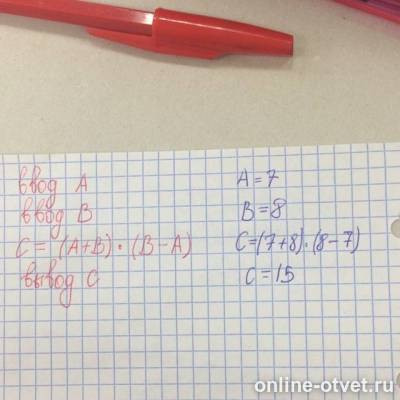 ввод A
ввод B
C = (A+B) · (B-A)
вывод C
A = 7
B = 8
C=(7+8)·(8-7)
C = 15
online-otvet.ru